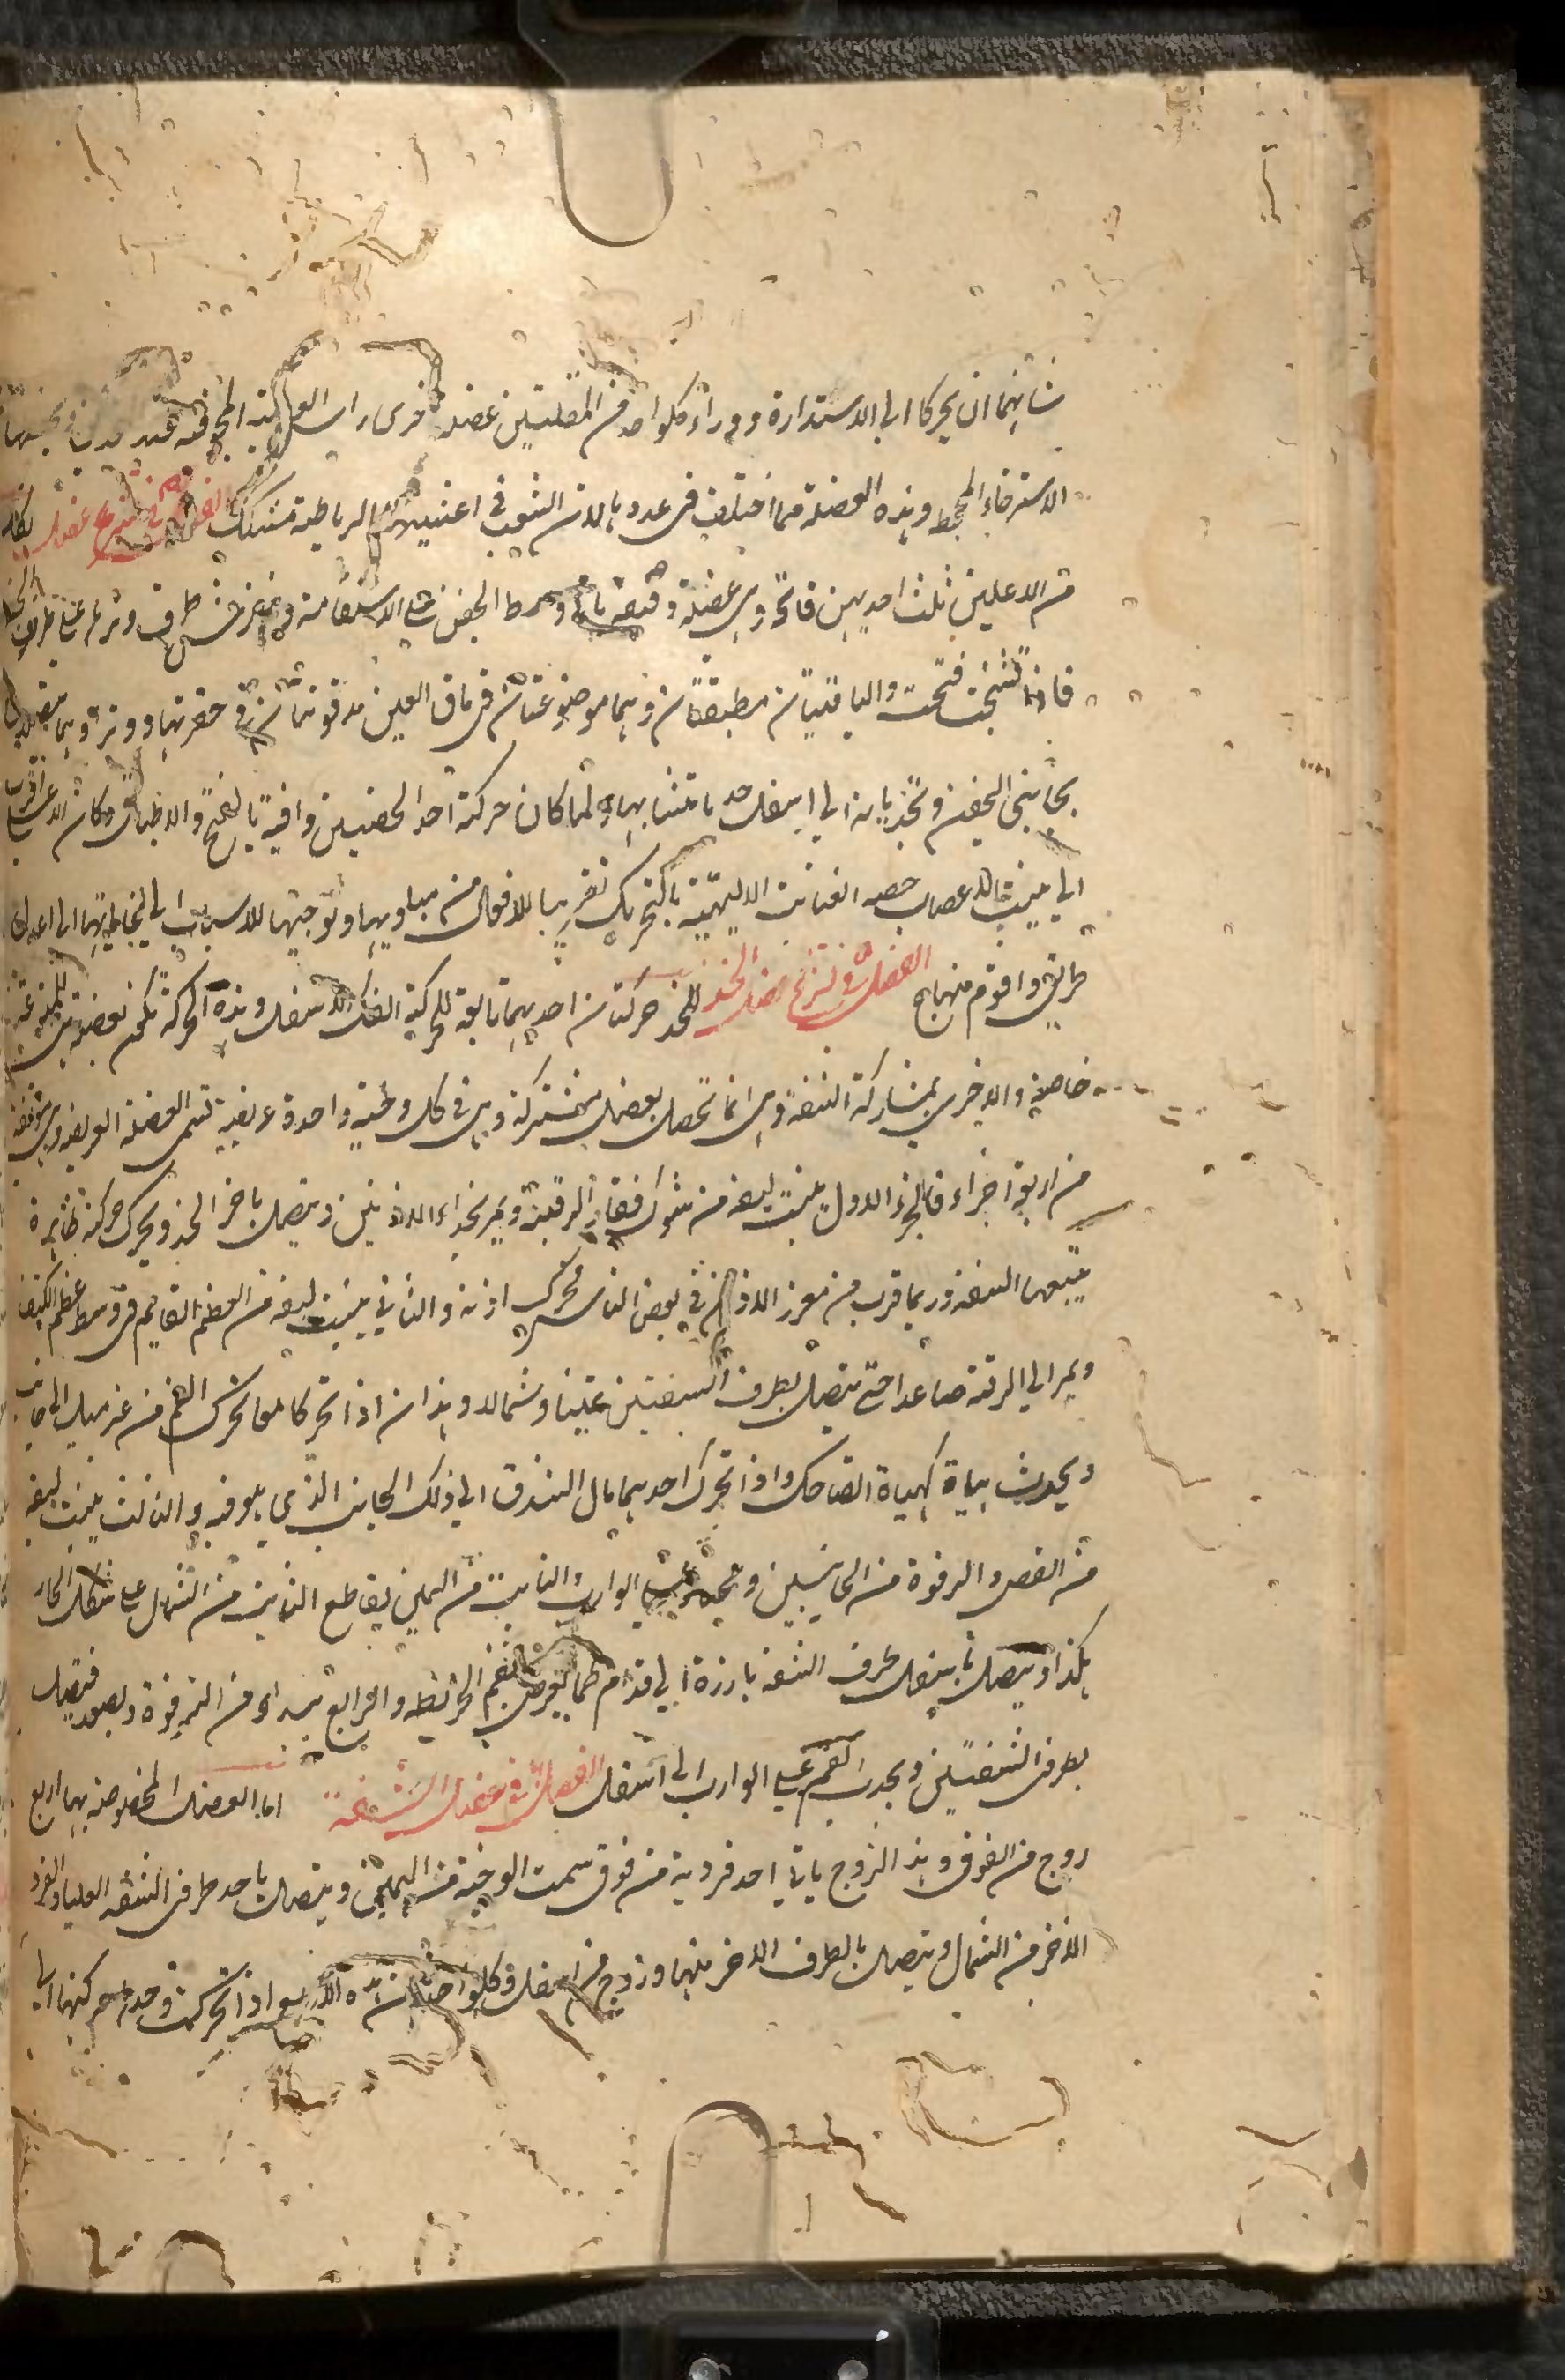 شانهما ان يحركا الى الاستدارة و وراء كلواحد من المقلتين عضلة اخرى راس العصبة المجوفة
الاسترخاء المجحظ وهذه العضلة مما اختلف فى عددها لان الشعب فى اغشيتها الرباطية مشكك الفصل فى تشريح عضل
من الاعلين ثلث احديهن فاتحة وهى عضلة وسط الجفن على الاستقامة طرف وترها على طرف
فاذا تشنجت فتحت والباقيتان مطبقتان وهما موضوعتان فى ماق العين مدفونتان فى حفرتها ووترهما
بجانبى الجفن وتجذبانه الى اسفل جذبا متشابها ولما كان حركة احد الجفنين وافية بالفتح والاطباق وكان الاعلى اقرب
الى منبت الاعصاب خصه العناية الالهية بالتحريك تقريبا للافعال من مباديها وتوجيها للاسباب الى غاياتها الى اعدل
طريق واقوم منهاج الفصل فى تشريح عضل الخد للخد حركتان احديهما تابعة لحركة الفك الاسفل وهذه الحركة
خاصة والاخرى بمشاركة الشفة وهى انما تحصل بعضل مشتركة وهى فى كل وجنة واحدة عريضة تسمى العضلة العريضة وهى
من اربعة اجزاء فالجزء الاول منبت ليفه من شوك فقار الرقبة ويمر بحذاء الاذنين ويتصل باجزاء الخد ويحرك حركة ظاهرة
يتبعها الشفة وربما قرب من مغرز الاذن فى بعض الناس محرك اذنه والثانى منبت ليفه من العظم القايم فى وسط عظم الكتف
ويمر الى الرقبة صاعدا حتى يتصل بطرف الشفتين يمينا وشمالا وهذان اذا تحركا معا تحرك الفم من غير ميل الى جانب
ويحدث هياة كهياة الضاحك واذا تحرك احدهما مال الشدق الى ذلك الجانب الذى هو فيه والثالث منبت ليفه
من القص والترقوة من الجانبين على الوارب والنابت من اليمين يقاطع النابت من الشمال على شكل
هكذا ويتصل باسفل طرف الشفة بارزة الى قدام كما يعرض لفم الخريطة والرابع من الترقوة ويصعد فيتصل
بطرفى الشفتين ويجذب الفم على الوارب الى اسفل الفصل فى عضل الشفة اما العضل المخصوصة بها اربع
زوج من الفوق وهذا الزوج ياتى احد فرديه من فوق سمت الوجنة من اليمين ويتصل باحد طرفى الشفة العليا والفرد
الاخر من الشمال ويتصل بالطرف الاخر منها وزوج من اسفل وكلواحد من هذه الاربع اذا تحركت وحدها حركتها الى